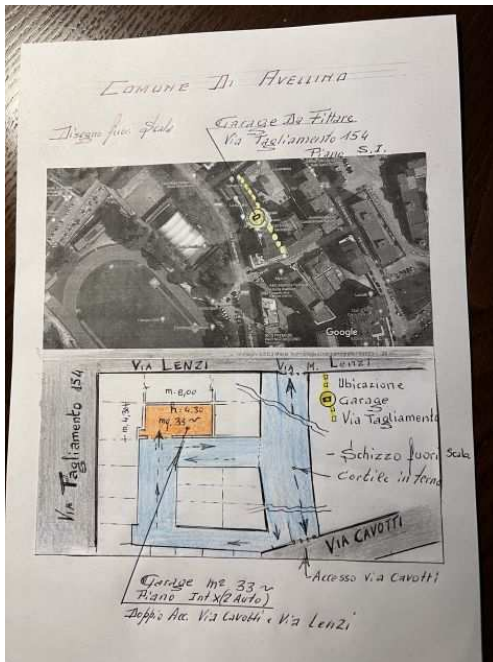 COMUNE DI AVELLINO
Disegno fuori Scala
Garage Da Fittare
Via Tagliamento 154
Piano S.I.
Google
VIA LENZI
Via M. Lenzi
VIA TAGLIAMENTO 154
m. 8,00
m. 4,30
h: 4.30
mq. 33 ~
Ubicazione
Garage
Via Tagliamento
Schizzo fuori Scala
Cortile interno
VIA CAVOTTI
Accesso via Cavotti
Garage m² 33 ~
Piano Int x (2 Auto)
Doppio Acc. Via Cavotti e Via Lenzi